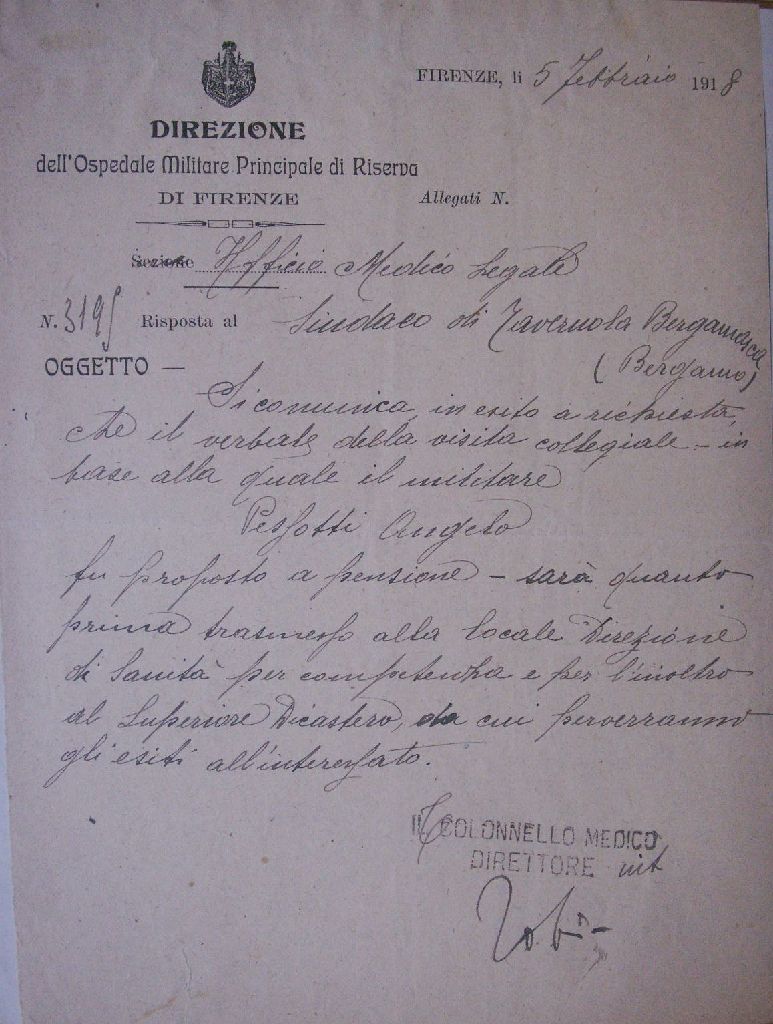 FIRENZE, li 5 Febbraio 1918
DIREZIONE
dell'Ospedale Militare Principale di Riserva
DI FIRENZE
Allegati N.
Sezione Ufficio Medico Legale
N. 3195 Risposta al Sindaco di Tavernola Bergamasca
(Bergamo)
OGGETTO —
Si comunica, in esito a richiesta,
che il verbale della visita collegiale – in
base alla quale il militare
Pessotti Angelo
fu proposto a pensione – sarà quanto
prima trasmesso alla locale Direzione
di Sanità per competenza e per l'inoltro
al Superiore Dicastero, da cui perverranno
gli esiti all'interessato.
IL COLONNELLO MEDICO
DIRETTORE